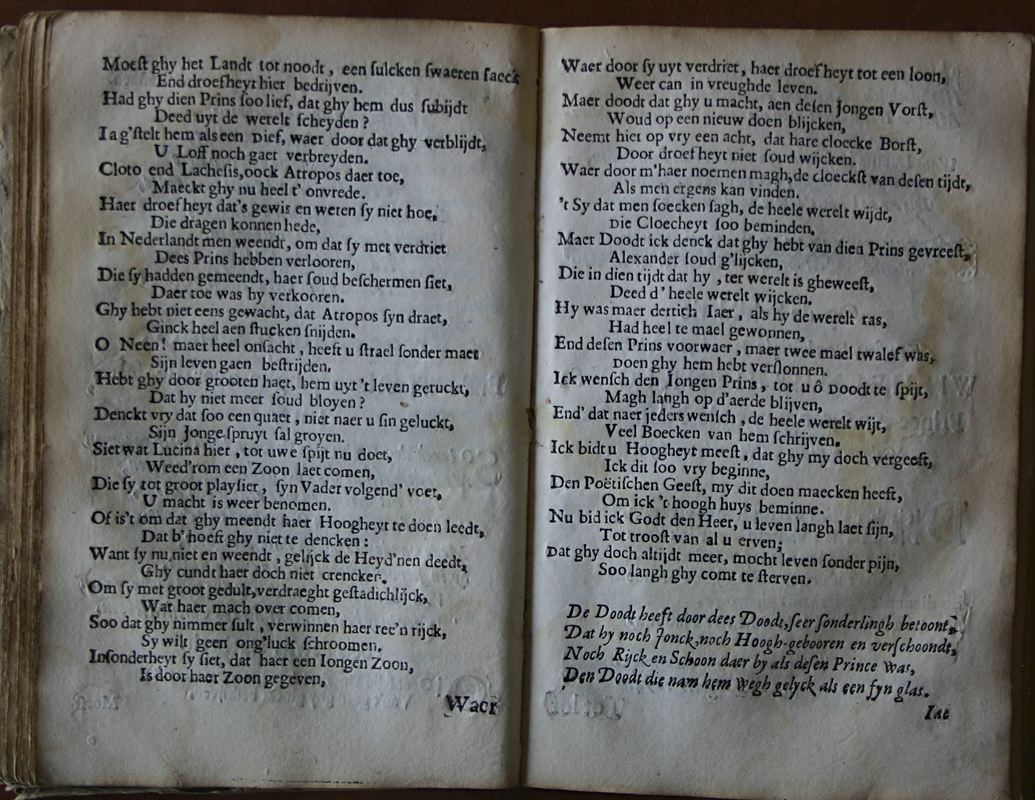 Moeſt ghy het Landt tot noodt, een ſulcken ſwaeren ſaeck
End droefheyt hier bedrijven.
Had ghy dien Prins ſoo lief, dat ghy hem dus ſubijdt
Deed uyt de werelt ſcheyden?
Ia g'ſtelt hem als een Dief, waer door dat ghy verblijdt,
U Loff noch gaet verbreyden.
Cloto end Lacheſis, oock Atropos daer toe,
Maeckt ghy nu heel t' onvrede.
Haer droefheyt dat's gewis en weten ſy niet hoe,
Die dragen konnen hede,
In Nederlandt men weendt, om dat ſy met verdriet
Dees Prins hebben verlooren,
Die ſy hadden gemeendt, haer ſoud beſchermen ſiet,
Daer toe was hy verkooren.
Ghy hebt niet eens gewacht, dat Atropos ſyn draet,
Ginck heel aen ſtucken ſnijden.
O Neen! maer heel onſacht, heeft u ſtrael ſonder maet
Sijn leven gaen beſtrijden.
Hebt ghy door grooten haet, hem uyt 't leven geruckt,
Dat hy niet meer ſoud bloyen?
Denckt vry dat ſoo een quaet, niet naer u ſin geluckt,
Sijn Jonge ſpruyt ſal groyen.
Siet wat Lucina hier, tot uwe ſpijt nu doet,
Weed'rom een Zoon laet comen,
Die ſy tot groot playſier, ſyn Vader volgend' voet,
U macht is weer benomen.
Of is't om dat ghy meendt haer Hoogheyt te doen leedt,
Dat b'hoeft ghy niet te dencken:
Want ſy nu niet en weendt, gelijck de Heyd'nen deedt,
Ghy cundt haer doch niet crencken.
Om ſy met groot gedult, verdraeght geſtadichlijck,
Wat haer mach over comen,
Soo dat ghy nimmer ſult, verwinnen haer ree'n rijck,
Sy wilt geen ong'luck ſchroomen.
Inſonderheyt ſy ſiet, dat haer een Iongen Zoon,
Is door haer Zoon gegeven,
Waer
Waer door ſy uyt verdriet, haer droefheyt tot een loon,
Weer can in vreughde leven.
Maer doodt dat ghy u macht, aen deſen Jongen Vorſt,
Woud op een nieuw doen blijcken,
Neemt hier op vry een acht, dat hare cloecke Borſt,
Door droefheyt niet ſoud wijcken.
Waer door m'haer noemen magh, de cloeckſt van deſen tijdt,
Als men ergens kan vinden.
't Sy dat men ſoecken ſagh, de heele werelt wijdt,
Die Cloecheyt ſoo beminden.
Maer Doodt ick denck dat ghy hebt van dien Prins gevreeſt,
Alexander ſoud g'lijcken,
Die in dien tijdt dat hy, ter werelt is gheweeſt,
Deed d' heele werelt wijcken.
Hy was maer dertich Iaer, als hy de werelt ras,
Had heel te mael gewonnen,
End deſen Prins voorwaer, maer twee mael twalef was,
Doen ghy hem hebt verſlonnen.
Ick wenſch den Jongen Prins, tot u ô Doodt te ſpijt,
Magh langh op d'aerde blijven,
End' dat naer jeders wenſch, de heele werelt wijt,
Veel Boecken van hem ſchrijven.
Ick bidt u Hoogheyt meeſt, dat ghy my doch vergeeft,
Ick dit ſoo vry beginne,
Den Poëtiſchen Geeſt, my dit doen maecken heeft,
Om ick 't hoogh huys beminne.
Nu bid ick Godt den Heer, u leven langh laet ſijn,
Tot trooſt van al u erven;
Dat ghy doch altijdt meer, mocht leven ſonder pijn,
Soo langh ghy comt te ſterven.
De Doodt heeft door dees Doodt, ſeer ſonderlingh betoont,
Dat hy noch Jonck, noch Hoogh-gebooren en verſchoondt,
Noch Rijck en Schoon daer by als deſen Prince was,
Den Doodt die nam hem wegh gelyck als een fyn glas.
Iae